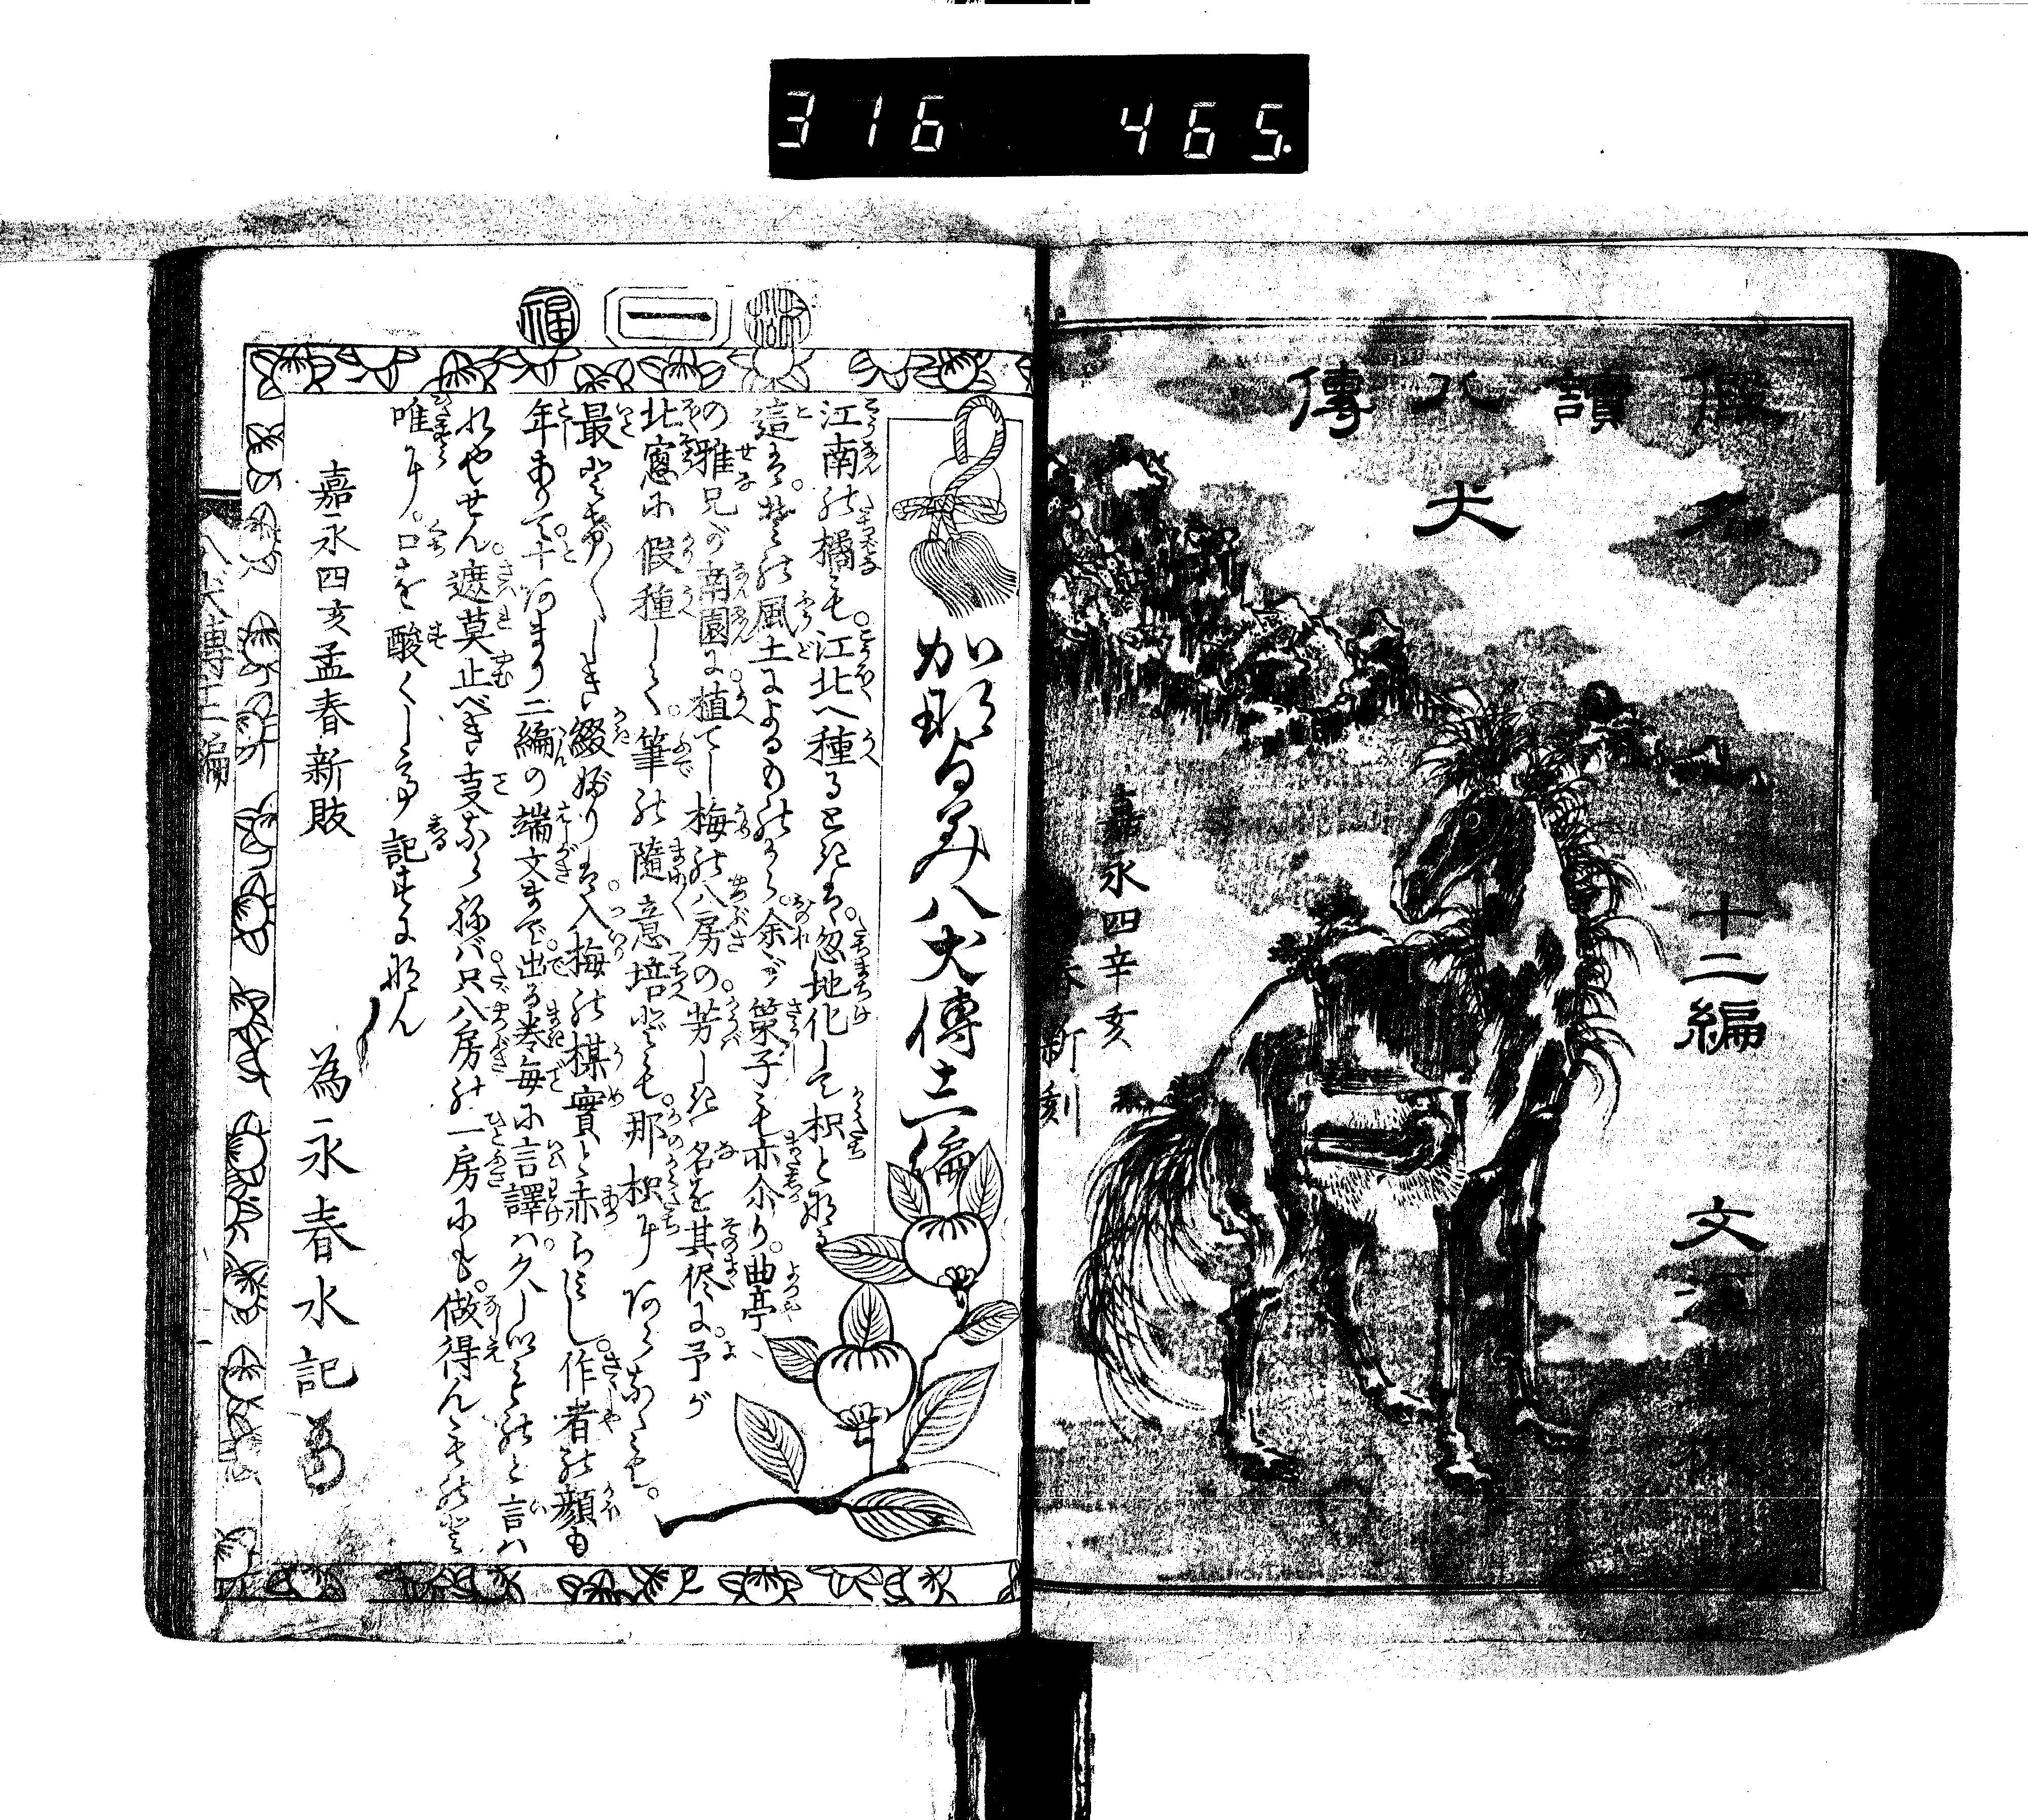 316 465.
假名
讀
八犬
傳
十二編
文溪堂梓
嘉永四辛亥
春新刻
松
一
福
加那与美八犬傳十二編
江南の橘も。江北へ種るときは。忽地化して枳と那る
這は其の風土によるものから。余が策子も亦尒り。曲亭
の雅兄が南園に植てし梅の八房の。芳しき名を其侭に。予が
北窓に假種して。筆の隨意培ども。那枳にハあらなくも。
最どもしき綴ぶりは。入梅の楳實と赤らみし。作者の顔も
年ありて。十あまり二編の端文まで。出る巻毎に言譯ハ。久しいものと言ハ
れやせん。遮莫止べき支ならねバ。只八房の一房にも。做得んものと
唯に。口を酸くして記すになん
嘉永四亥孟春新販
為永春水記
八犬傳十二編